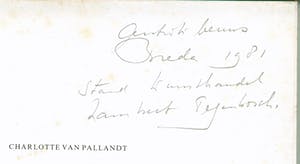 antiek beurs
Breda 1981
Stand Kunsthandel
Lambert Tegenbosch.
CHARLOTTE VAN PALLANDT